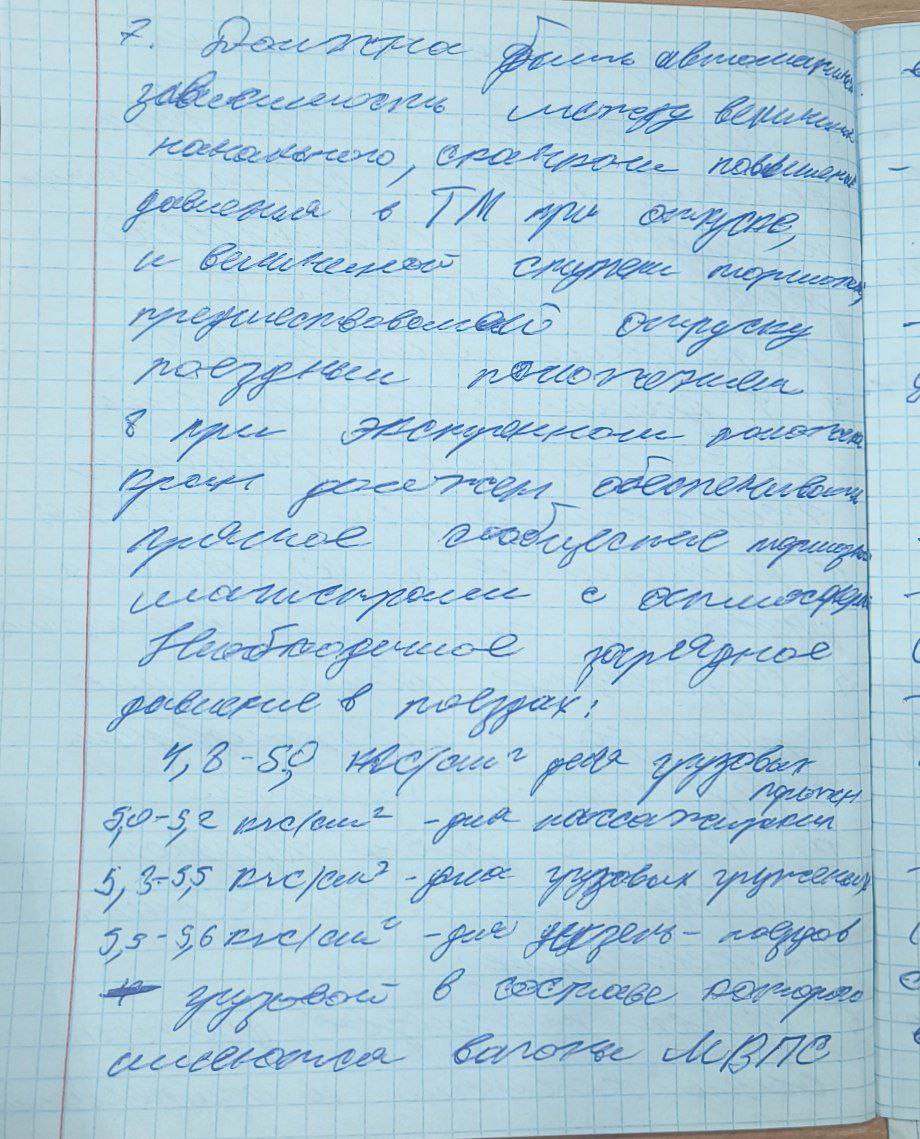 7. Должна быть автоматическ.
зависимость между величин
начального, скачком повышения
давления в ТМ при отпуске,
и величиной ступени торможен,
предшествовавшей отпуску
поездным положением
8 при экстренном положен
кран должен обеспечивать
прямое сообщение тормозн
магистрали с атмосфер
Необходимое зарядное
давление в поездах:
4,8-5,0 кгс/см² для грузовых
порожн
5,0-5,2 кгс/см² - для пассажирских
5,3-5,5 кгс/см² - для грузовых груженых
5,5-5,6 кгс/см² - для поездов
грузовой в составе которого
имеются вагоны МВПС